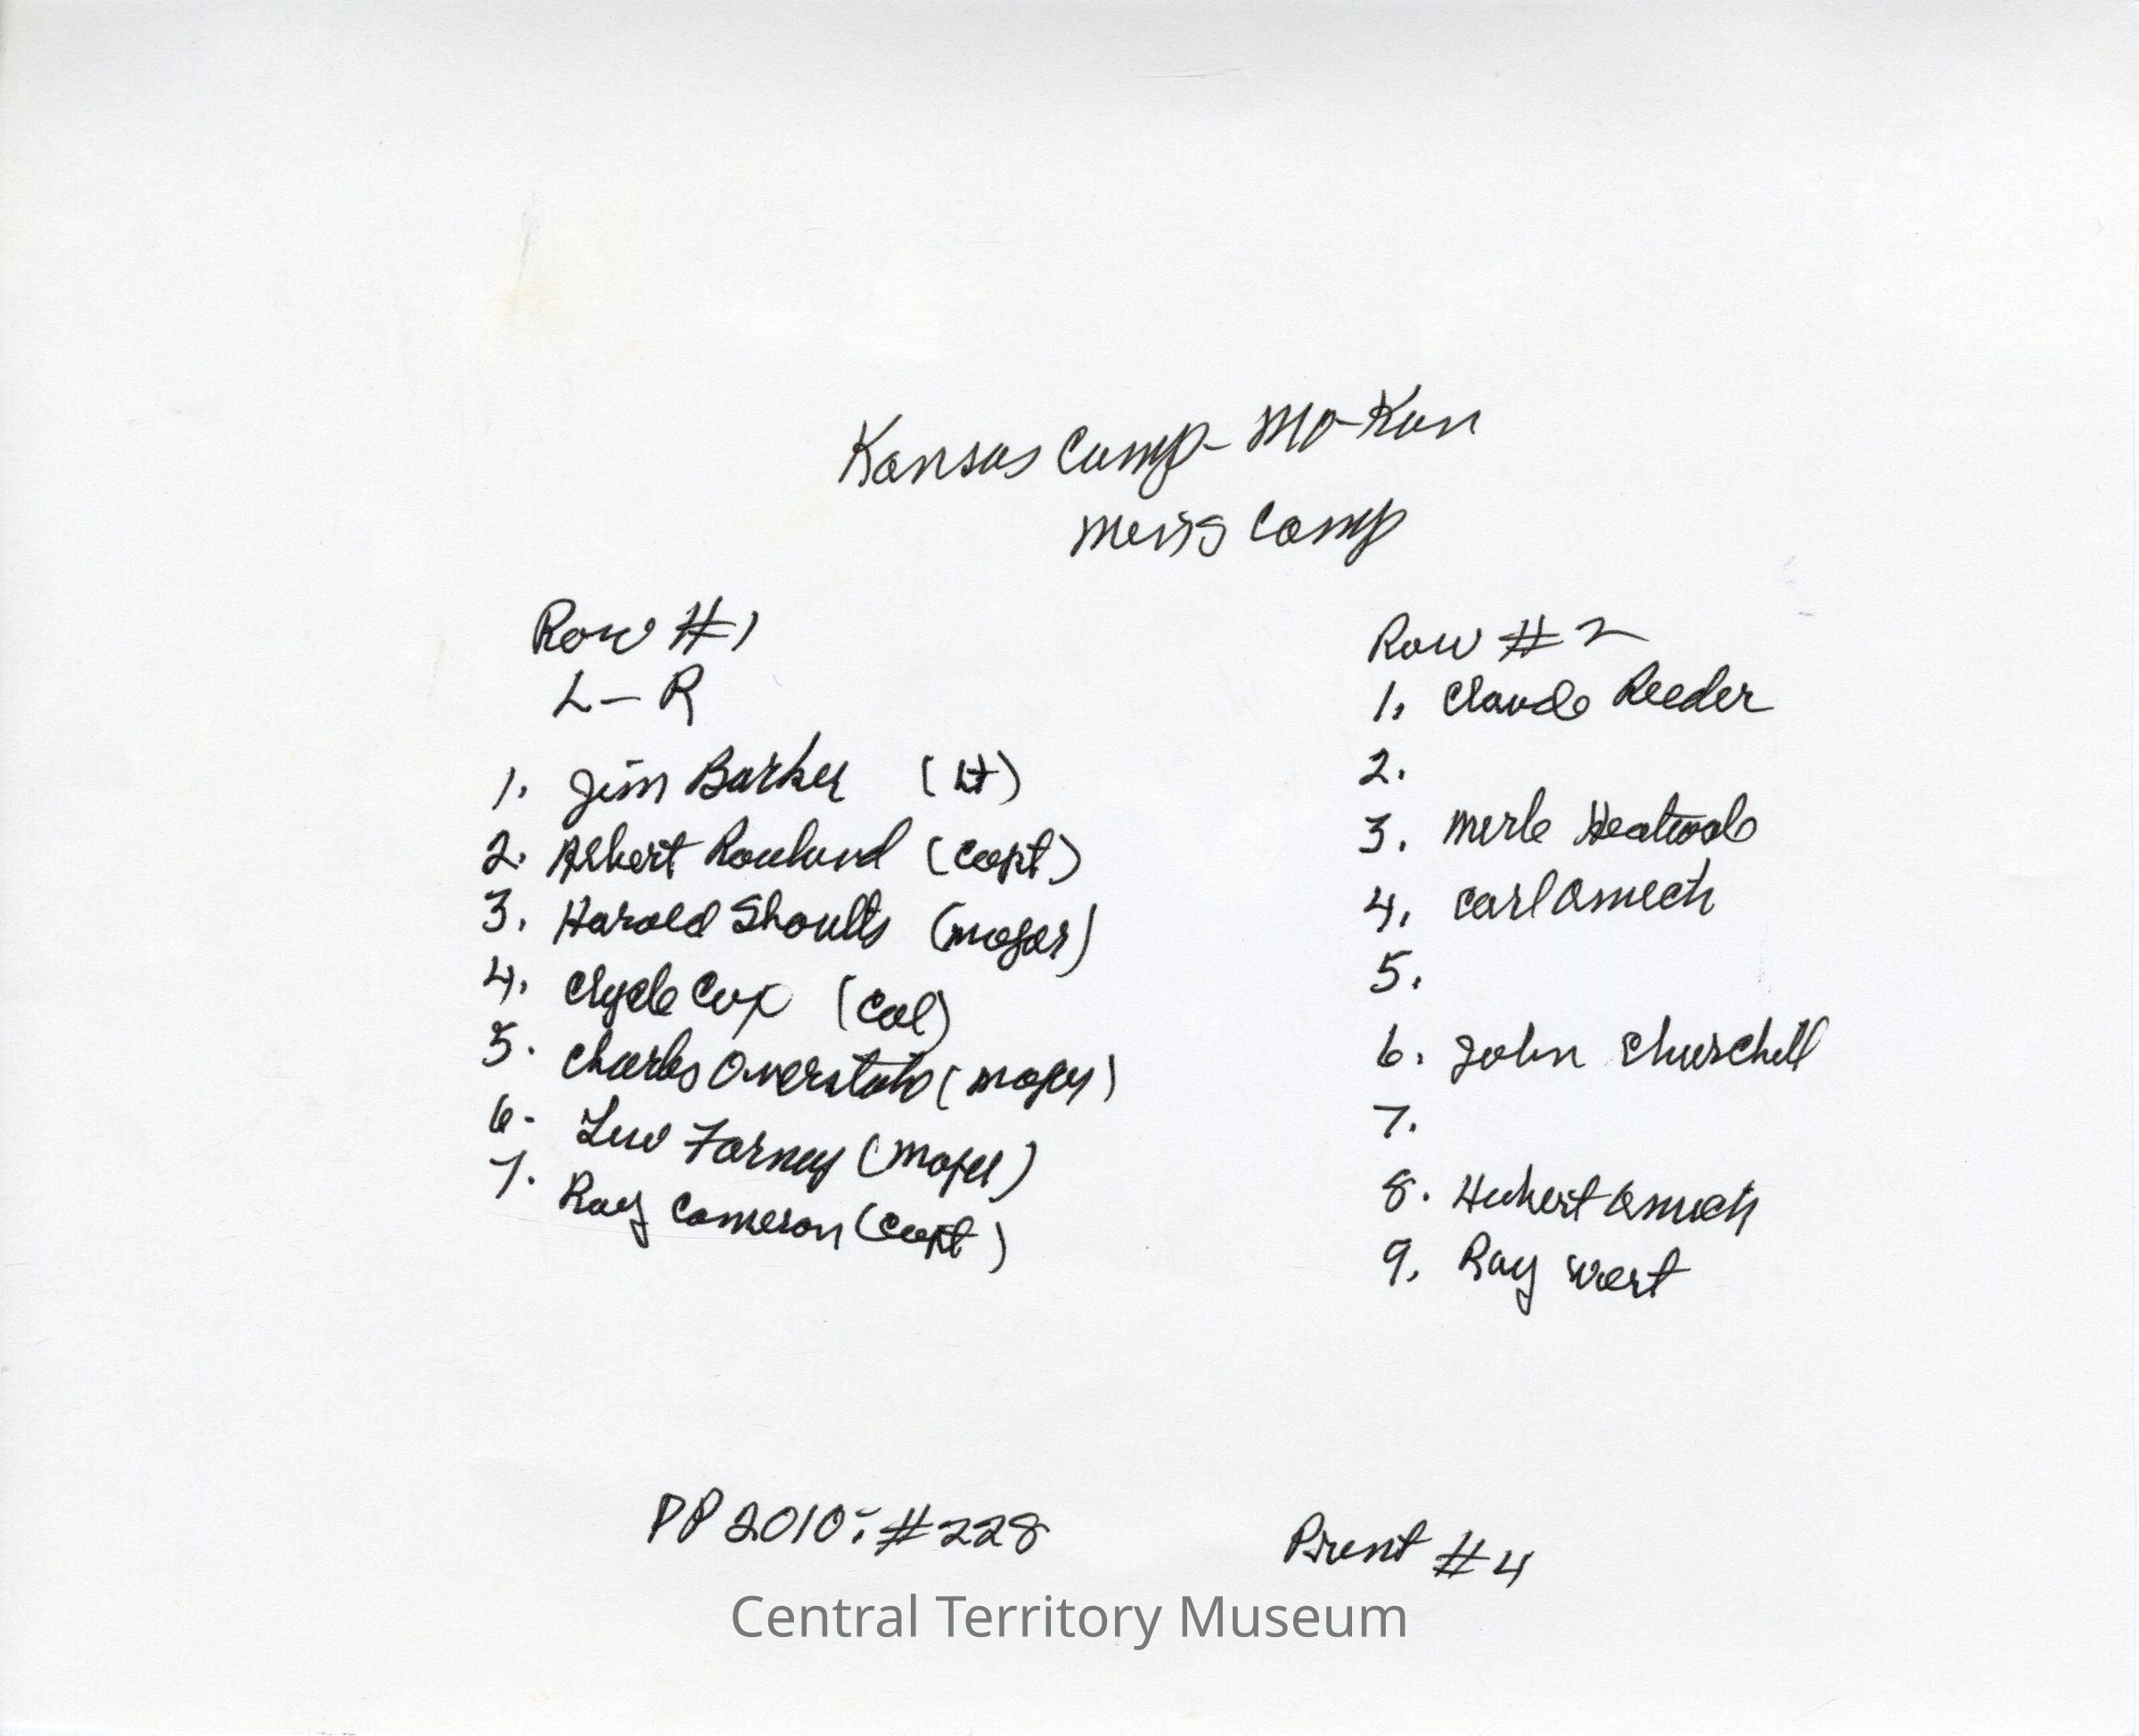 Kansas Camp - Mo-Kan
Men's Camp
Row #1
L - R
1. Jim Barker (Lt)
2. Albert Rowland (Capt)
3. Harold Shoults (Major)
4. Clyde Cox (Col)
5. Charles Overstake (Major)
6. Lew Forney (Major)
7. Ray Cameron (Capt)
Row #2
1. Claude Reeder
2.
3. Merle Heatwole
4. Carl Amick
5.
6. John Churchill
7.
8. Hubert Amick
9. Ray Wert
PP 2010: #228
Print #4
Central Territory Museum